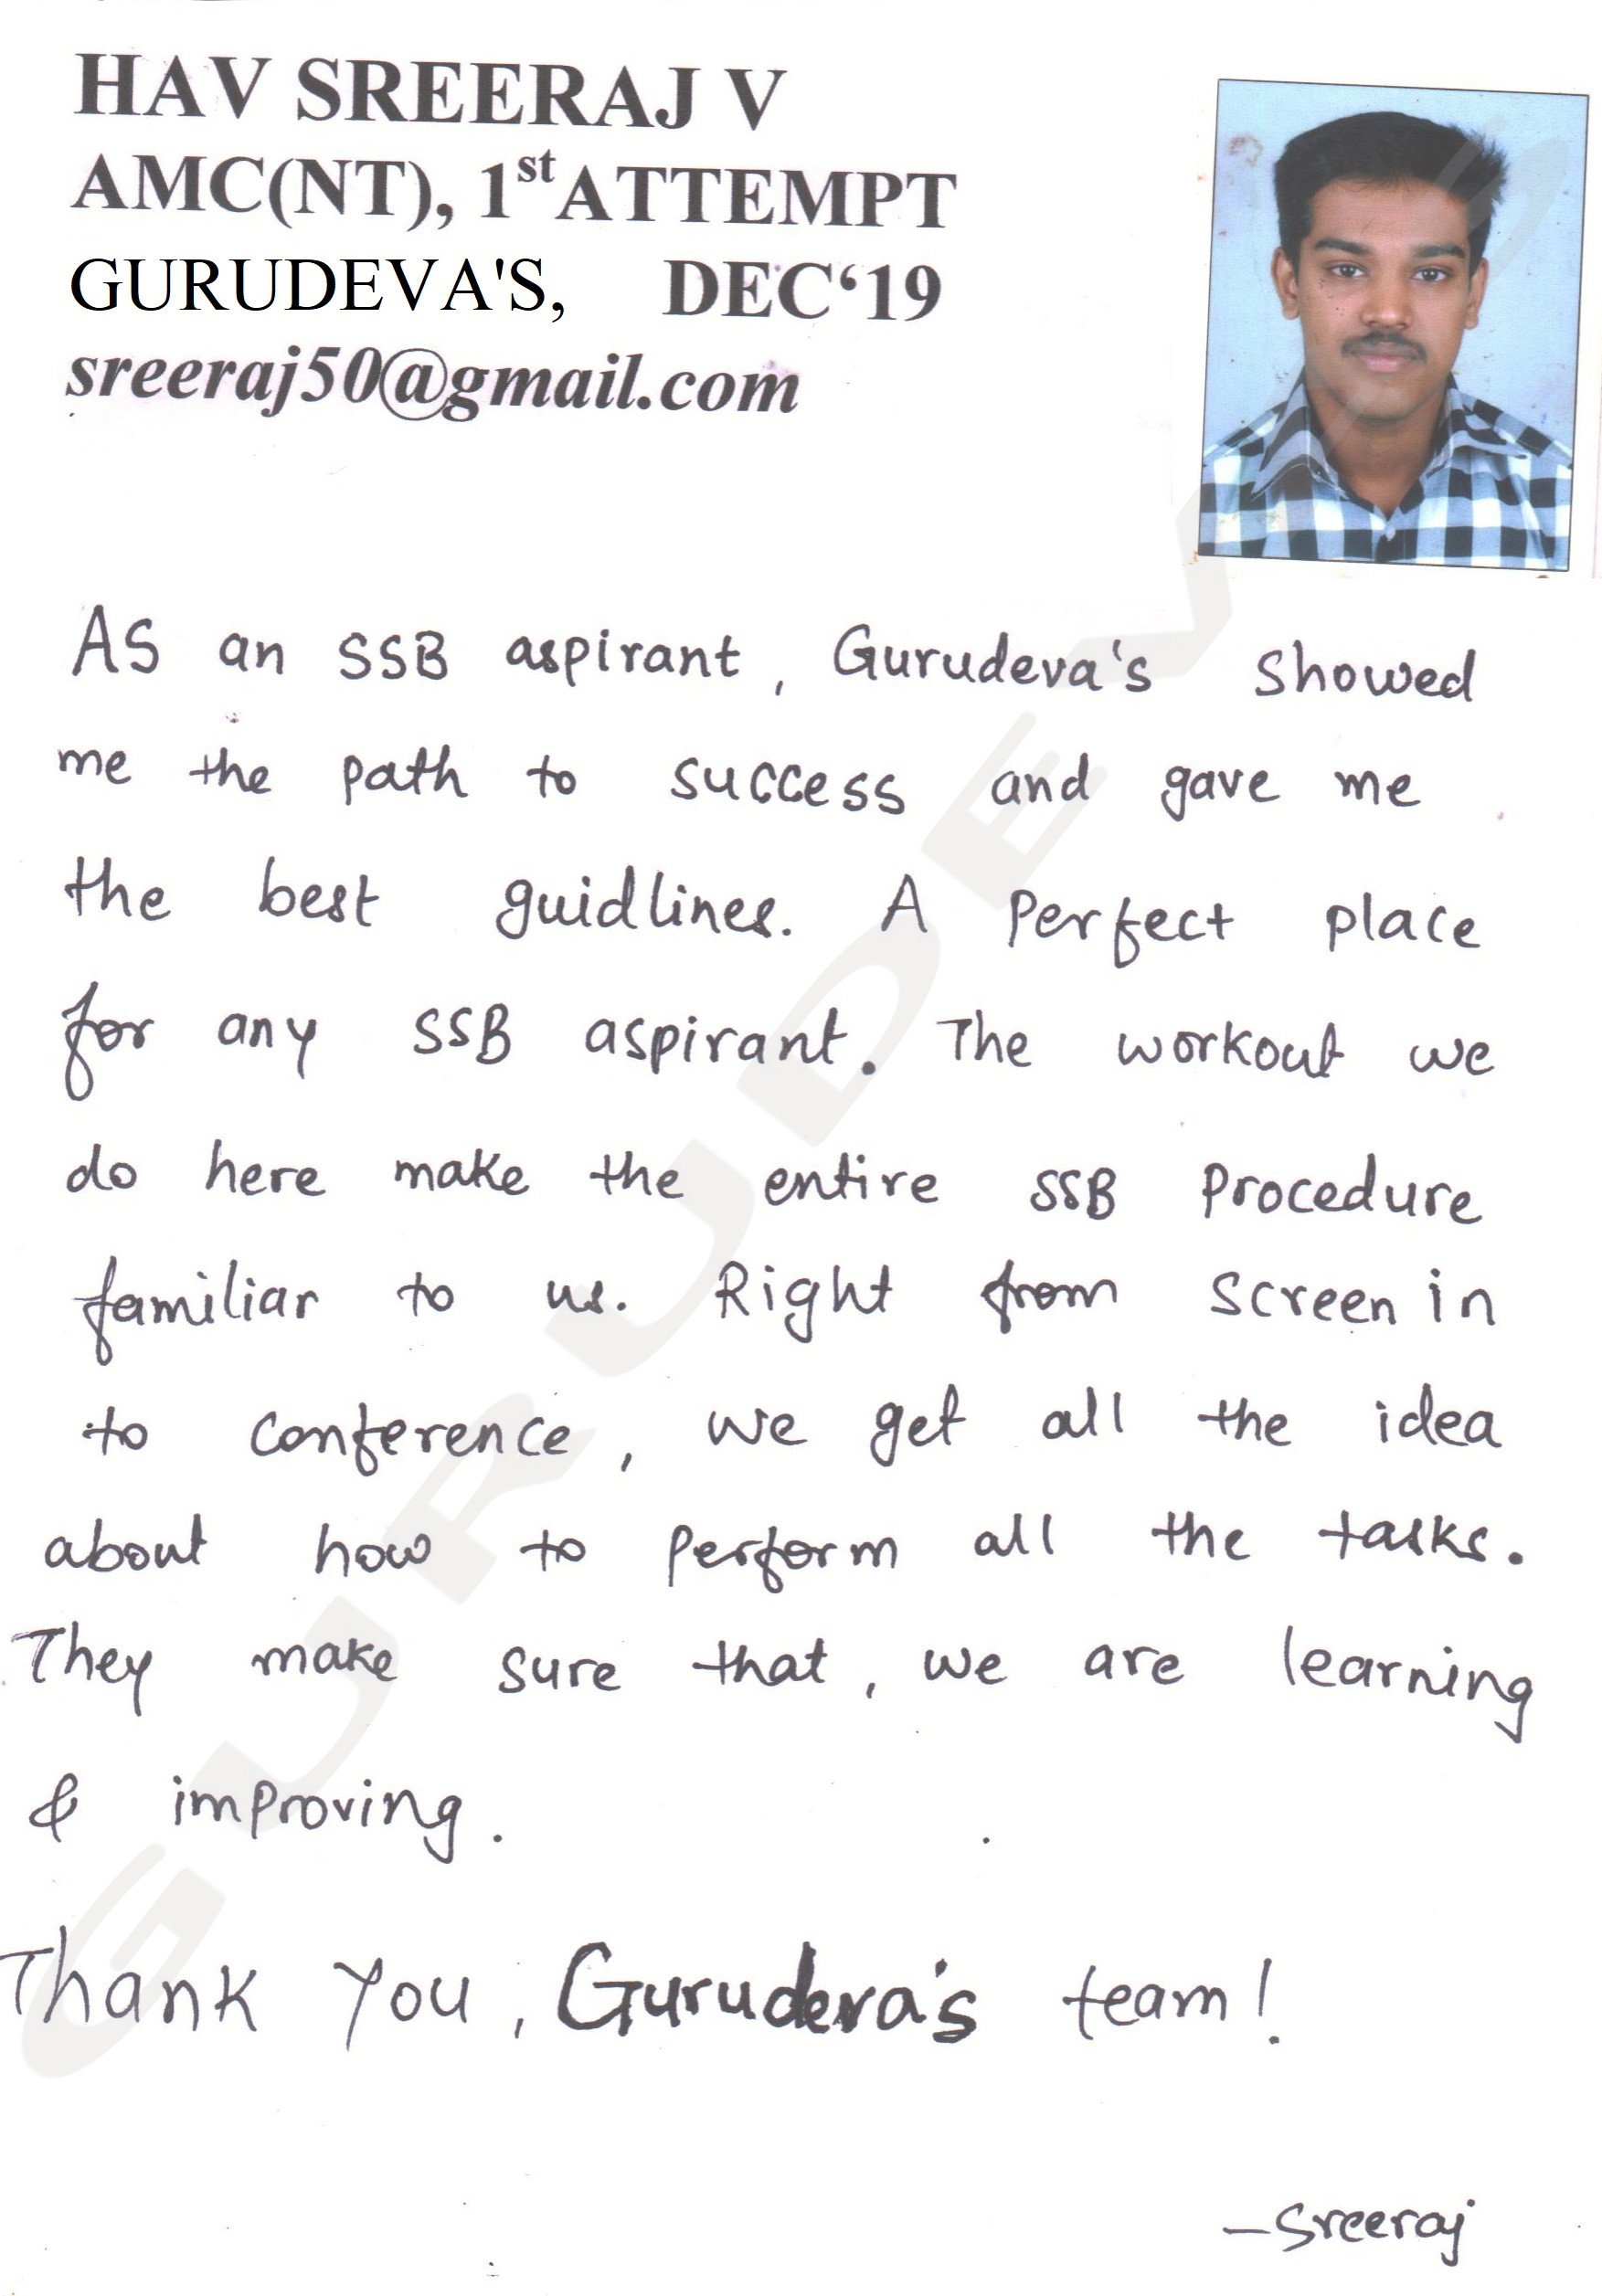 HAV SREERAJ V
AMC(NT), 1st ATTEMPT
GURUDEVA'S, DEC‘19
sreeraj50@gmail.com
As an SSB aspirant, Gurudeva's showed
me the path to success and gave me
the best guidlines. A perfect place
for any SSB aspirant. The workout we
do here make the entire SSB procedure
familiar to us. Right from screen in
to conference, we get all the idea
about how to perform all the tasks.
They make sure that, we are learning
& improving.
Thank you, Gurudeva's team!
-Sreeraj
GURUDEVA'S